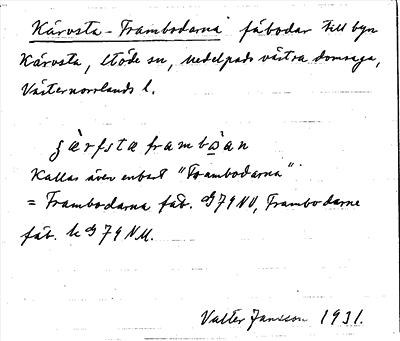 Kärvsta-Frambodarna fäbodar till byn
Kärvsta, Stöde sn, Medelpads västra domsaga,
Västernorrlands l.
jä̀rfsta frambǫ̀an
Kallas även enbart "Frambodarna"
= Frambodarna fäb. G79NV, Frambodarne
fäb. k G 79 NM.
Valter Jansson 1931.